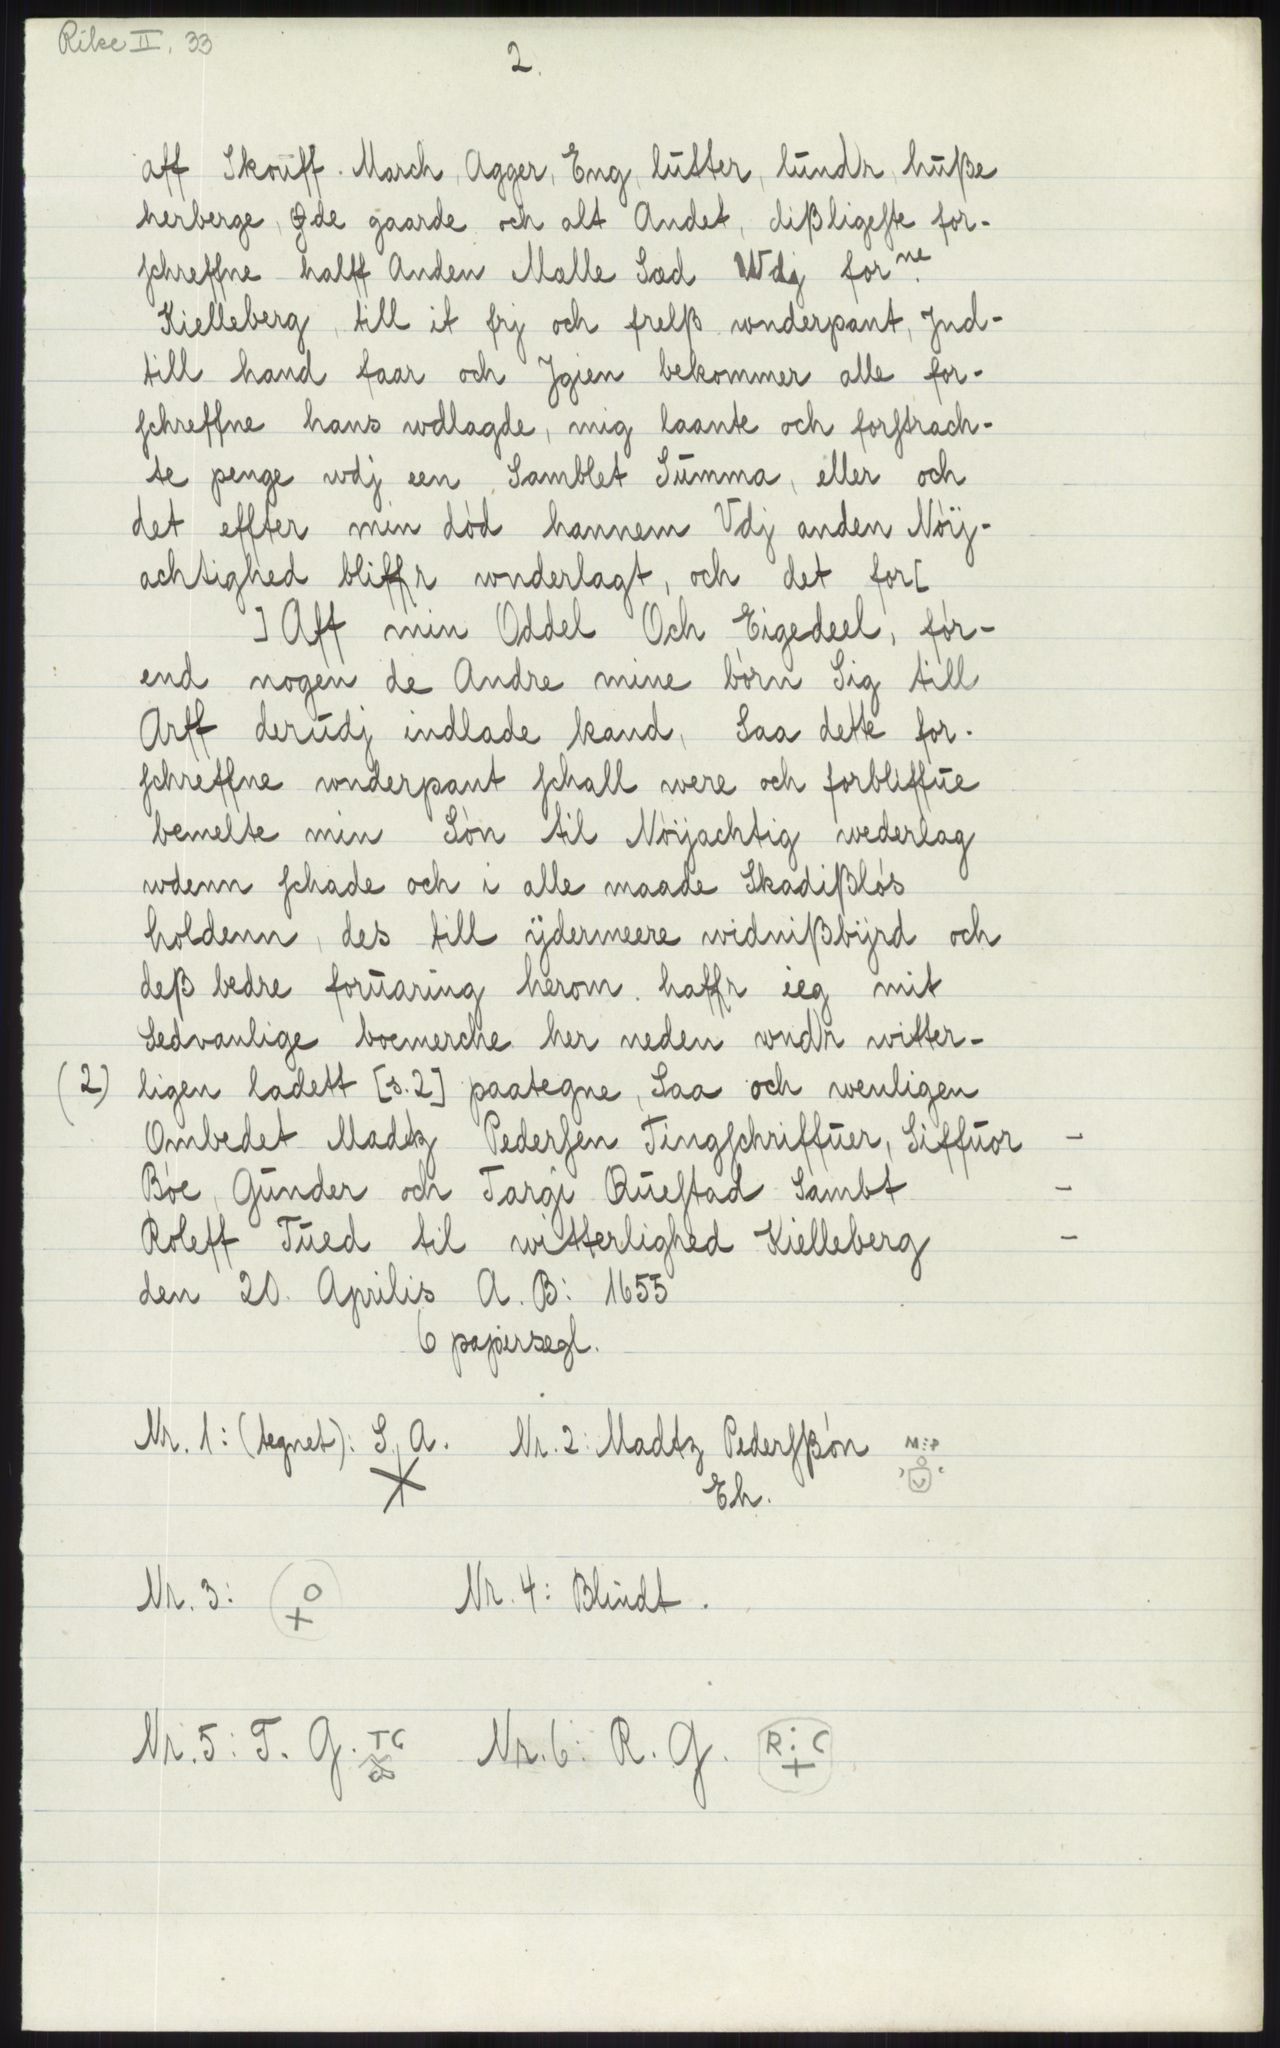 Rike II, 33
2.
aff Skouff. March, Agger, Eng, lutter, lundr, huße
herberge, øde gaarde och alt Andet, dißligeste for-
schreffne halff Anden Mælle Sæd Wdj for ne.
Kielleberg, till it frj och frelß wnderpant, Jnd-
till hand faar och Jgien bekommer alle for-
schreffne hans wdlagde, mig laante och forstrach-
te penge wdj een Samblet Summa, eller och
det effter min död hannem Vdj anden Nöij-
achtighed bliffr wnderlagt, och det for[
] Aff min Oddel Och Eigedeel, för-
end nogen de Andre mine börn Sig till
Arff derudj indlade kand, Saa dette for-
schreffne wnderpant schall were och forbliffue
bemelte min Sön til Nöijachtig wederlag
wdenn schade och i alle maade Skadißlös
holdenn, des till ijdermeere widnißbijrd och
deß bedre foruaring herom. haffr ieg mit
Sedvanlige bocmerche her neden wndr witter-
(2) ligen ladett [s.2] paategne, Saa och wenligen
Ombedet Madtz Pedersen Tingschriffuer, Siffuor -
Böe, Gunder och Targi Ruestad Sambt -
Roleff Tued til witterlighed Kielleberg -
den 20. Aprilis A. B: 1655
6 papirsegl.
Nr. 1: (tegnet): S. A. Nr. 2: Madtz Pedersßön M:P
Eh.
Nr. 3: Nr. 4: Blindt.
Nr. 5: T. G. TG Nr. 6: R. G. R:C